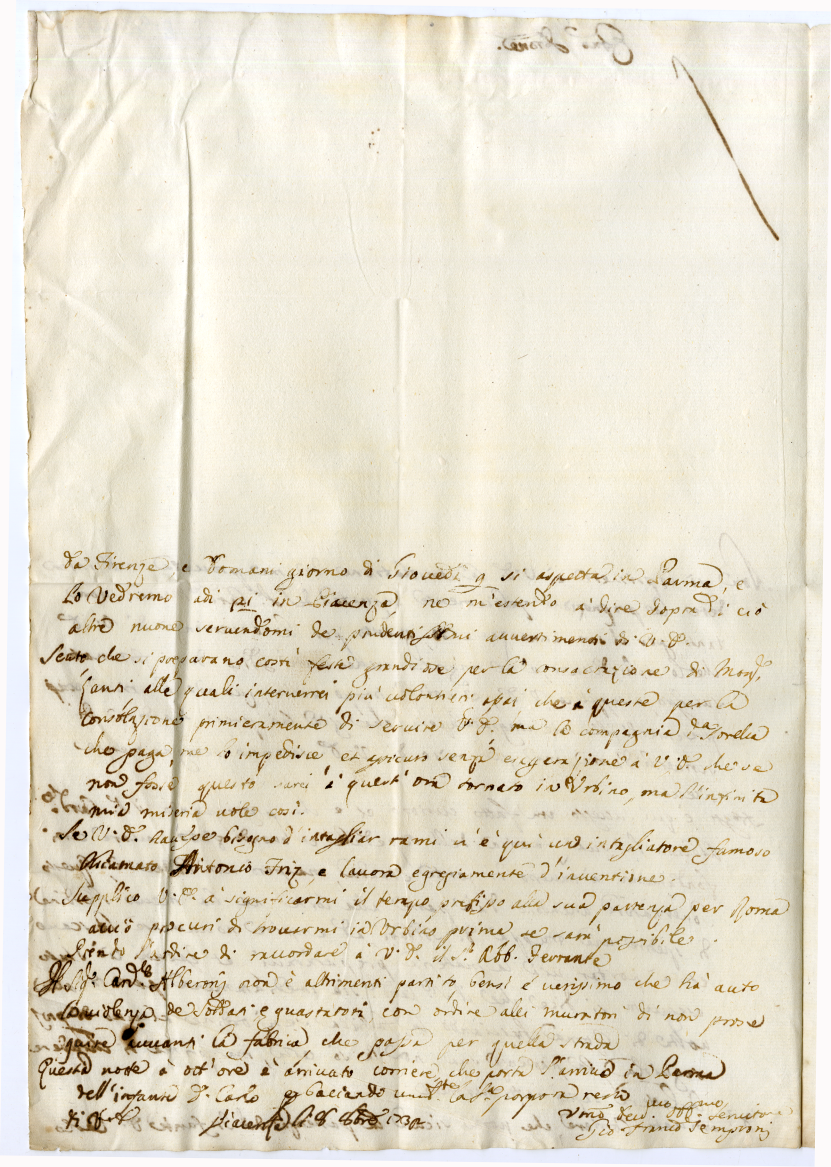 da Firenze e Domani giorno di Giovedì 9 si aspetta in Parma, e
lo vedremo adi in Piacenza, ne m'estendo a dire sopra di ciò
altre nuove servendomi de prudentissimi avvertimenti di V. E.
Sento che si preparano costì feste grandiose per la consacrazione di Mons.
alle quali interverrei più volontieri assai che à queste per la
consolazione primieramente di servire V. E. ma la compagnia da Sorelia
che paga, me lo impedisce et assicuro senza esaggerazione à V. E. che se
non fosse questo sarei à quest'ora tornato in Urbino, ma l'infinita
mia miseria vole così.
Se V. E. havesse bisogno d'intagliar rami v'è quì un intagliatore famoso
chiamato Antonio Friz, e lavora egregiamente d'inventione.
Supplico V. E. à significarmi il tempo prefisso alla sua partenza per Roma
acciò procuri di trovarmi in Urbino prima se sarà possibile.
l'ardire di raccordare à V. E. il S. Abb. Ferrante
Il Sig. Card.le Alberonj non è altrimenti partito bensì è verissimo che hà auto
la violenza de Soldati e guastatori con ordine alli muratori di non prose
guire avvanti la fabrica che passa per quella strada
Questa notte à ott'ore è arrivato corriere che porta l'arrivo in Parma
dell'infante D. Carlo e baciando la S. porpora resto
di V. E. Piacenza li 8 8bre 173
Servitore
Gio Franco Sempronj